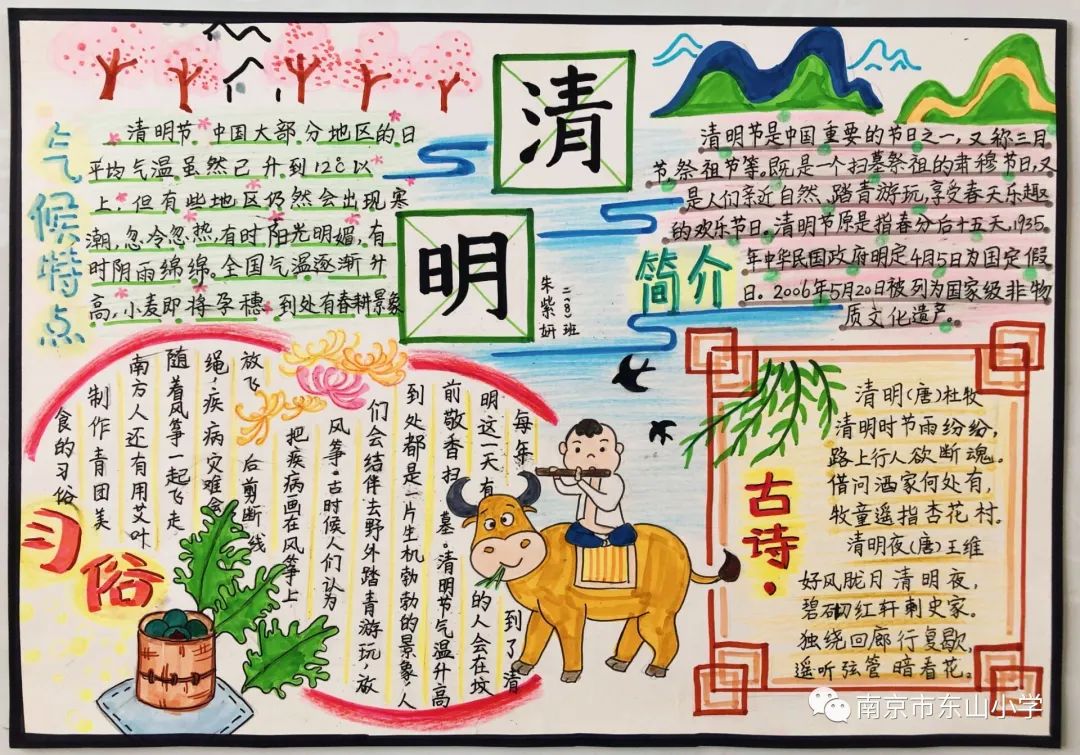 清
明
二(8)班
朱紫妍
气候特点
清明节,中国大部分地区的日
平均气温虽然已升到12℃以
上,但有些地区仍然会出现寒
潮,忽冷忽热,有时阳光明媚,有
时阴雨绵绵。全国气温逐渐升
高,小麦即将孕穗,到处有春耕景象
简介
清明节是中国重要的节日之一,又称三月
节,祭祖节等。既是一个扫墓祭祖的肃穆节日,又
是人们亲近自然、踏青游玩,享受春天乐趣
的欢乐节日。清明节原是指春分后十五天,1935
年中华民国政府明定4月5日为国定假
日。2006年5月20日被列为国家级非物
质文化遗产。
习俗
每年到了清
明这一天有的人会在坟
前敬香扫墓。清明节气温升高
到处都是一片生机勃勃的景象,人
们会结伴去野外踏青游玩,放
风筝。古时候人们认为
把疾病画在风筝上
放飞后剪断线
绳,疾病灾难会
随着风筝一起飞走
南方人还有用艾叶
制作青团美
食的习俗
古诗·
清明(唐)杜牧
清明时节雨纷纷,
路上行人欲断魂。
借问酒家何处有,
牧童遥指杏花村。
清明夜(唐)王维
好风胧月清明夜,
碧砌红轩刺史家。
独绕回廊行复歇,
遥听弦管暗看花。
南京市东山小学